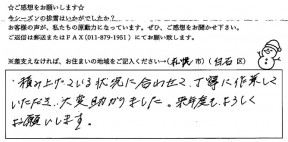 ☆ご感想をお願いします☆
今シーズンの排雪はいかがでしたか？
お客様の声が、私たちの原動力になっています。ぜひ、ご感想をお聞かせ下さい。
ご返信は郵送またはＦＡＸ(011-879-1951)にてお願い致します。
※差支えなければ、お住まいの地域をご記入ください→(札幌 市)(白石 区)
・積み上げている状況に合わせて、丁寧に作業して
いただき、大変助かりました。来年度もよろしく
お願いします。